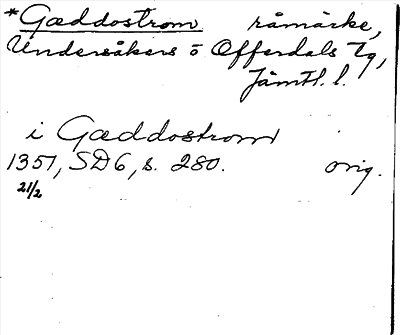 *Gæddostrom råmärke,
Undersåkers o Offerdals tg,
Jämtl. l.
i Gæddostrom
1357, SD6, s. 280. orig.
21/2